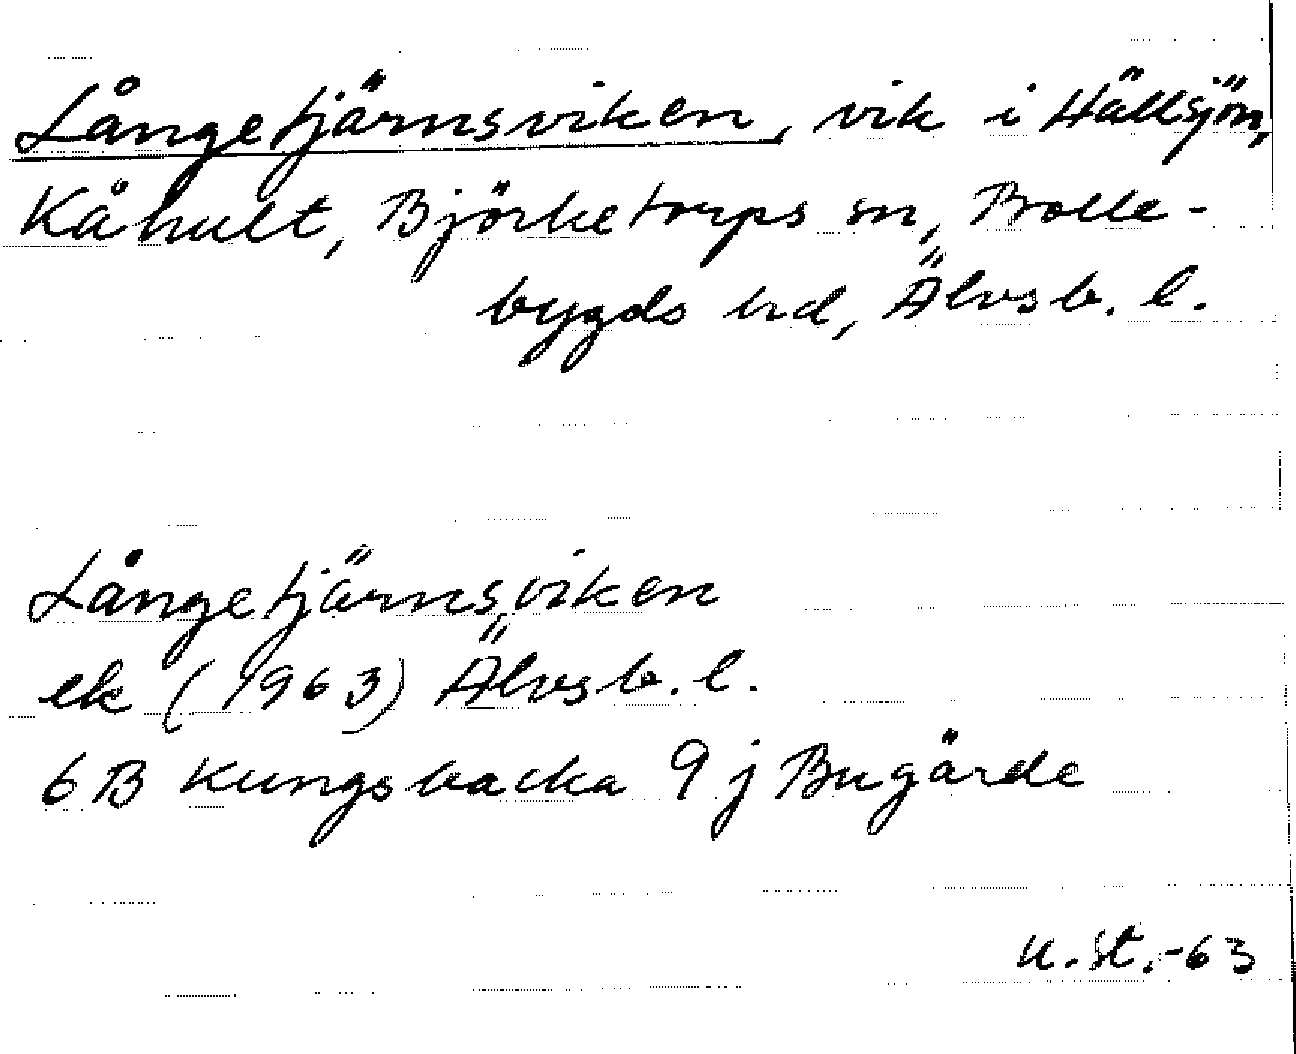 Långetjärnsviken, vik i Hällsjön,
Kåhult, Björketorps sn, Bolle-
bygds hd, Älvsb. l.
Långetjärnsviken
ek (1963) Älvsb. l.
6B Kungsbacka 9j Bugärde
U.St.-63